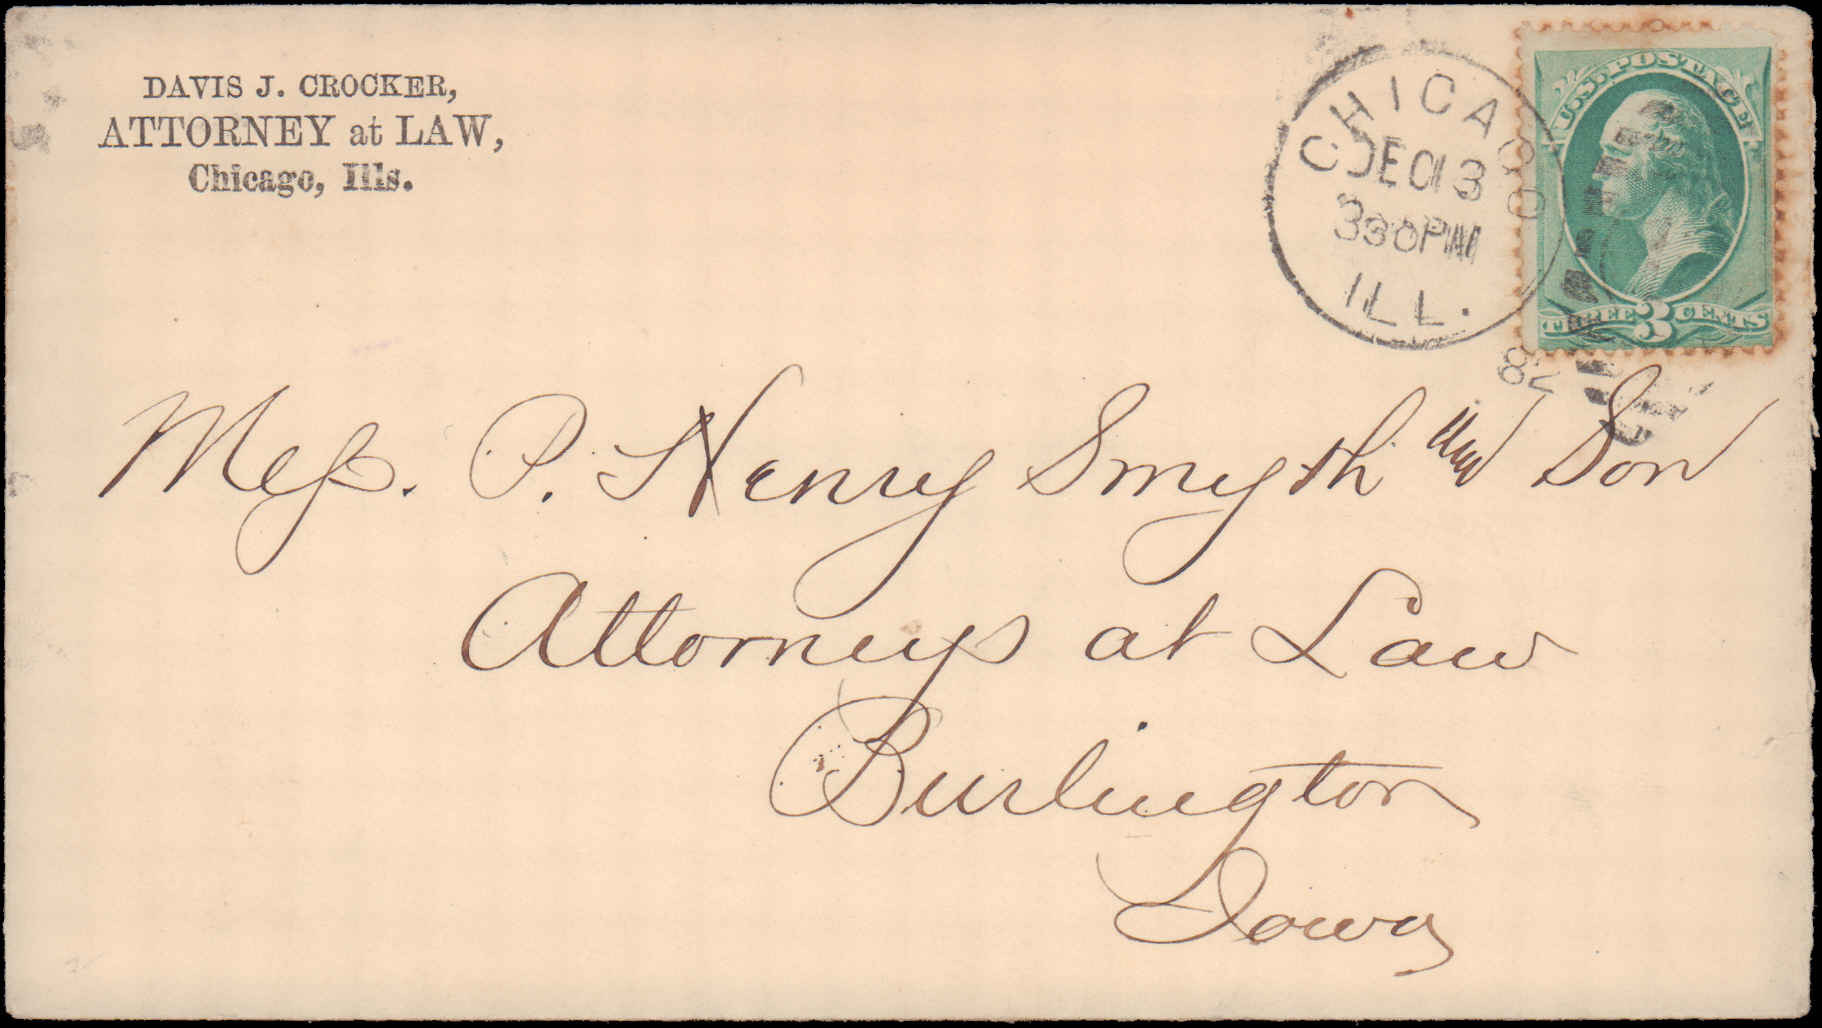 DAVIS J. CROCKER,
ATTORNEY at LAW,
Chicago, Ills.
CHICAGO
DEC 13
3 30 PM
ILL.
U.S. POSTAGE
THREE 3 CENTS
Mess. P. Henry Smyth and Son
Attorneys at Law
Burlington
Iowa